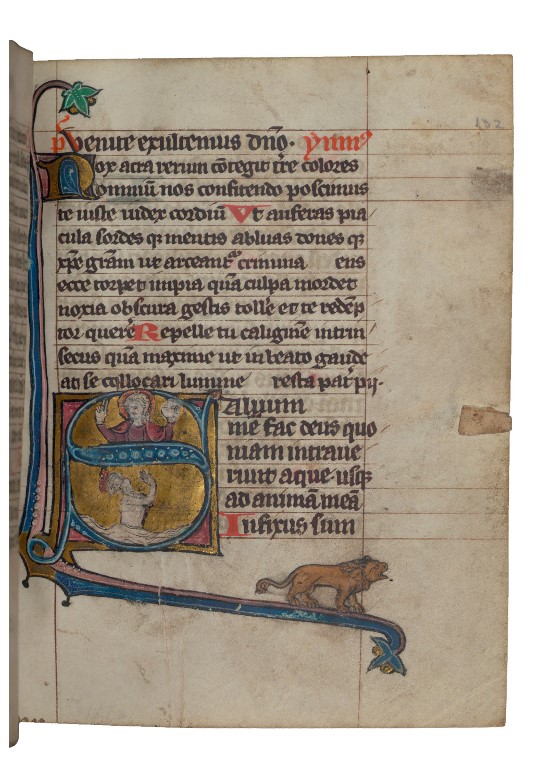 132
p̄s Venite exultemus dn̄o. ymnꝰ
Nox atra rerum cōtegit tr̄e colores
omniū nos confitendo poscimus
te iuste iudex cordiū Vt auferas pia
cula sordes q̄ mentis abluas dones q̄
xp̄e gr̄am ut arceantᷣ crimina ens
ecce torpet impia quā culpa mordet
noxia obscura gestis tolle et te redēp
tor querẽ Repelle tu caliginē intrin
secus quā maxime ut in beato gaude
at se collocari lumine resta pat̓ pij.
Saluum
me fac deus quo
niam intraue
runt aque usqꝫ
ad animā meā
Infixus sum